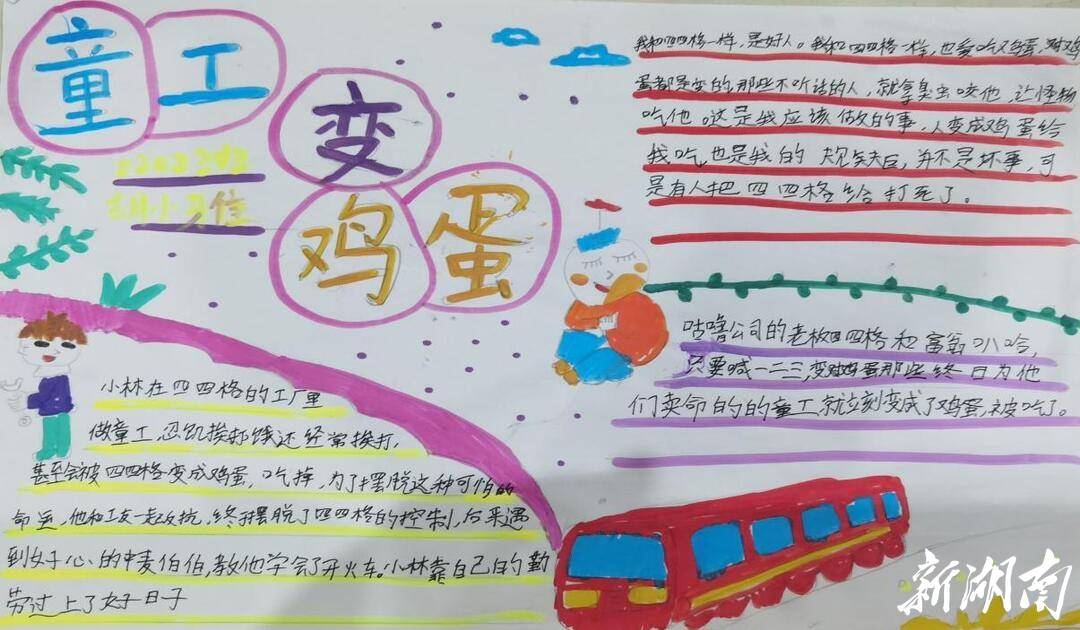 童工
变
鸡蛋
我和四四格一样，是好人。我和四四格一样，也爱吃鸡蛋，对鸡
蛋都是变的那些不听话的人，就拿臭虫咬他，让怪物
吃他。这是我应该做的事，人变成鸡蛋给
我吃，也是我的规矩，并不是坏事，可
是有人把四四格给打死了。
咕噜公司的老板四四格和富翁叭哈，
只要喊一二三，变鸡蛋那些终日为他
们卖命的的童工，就立刻变成了鸡蛋，被吃了。
小林在四四格的工厂里
做童工，忍饥挨打饿还经常挨打，
甚至会被四四格变成鸡蛋，吃掉，为了摆脱这种可怕的
命运，他和工友一起反抗，终于摆脱了四四格的控制，后来遇
到好心的中麦伯伯，教他学会了开火车。小林靠自己的勤
劳过上了好日子
新湖南